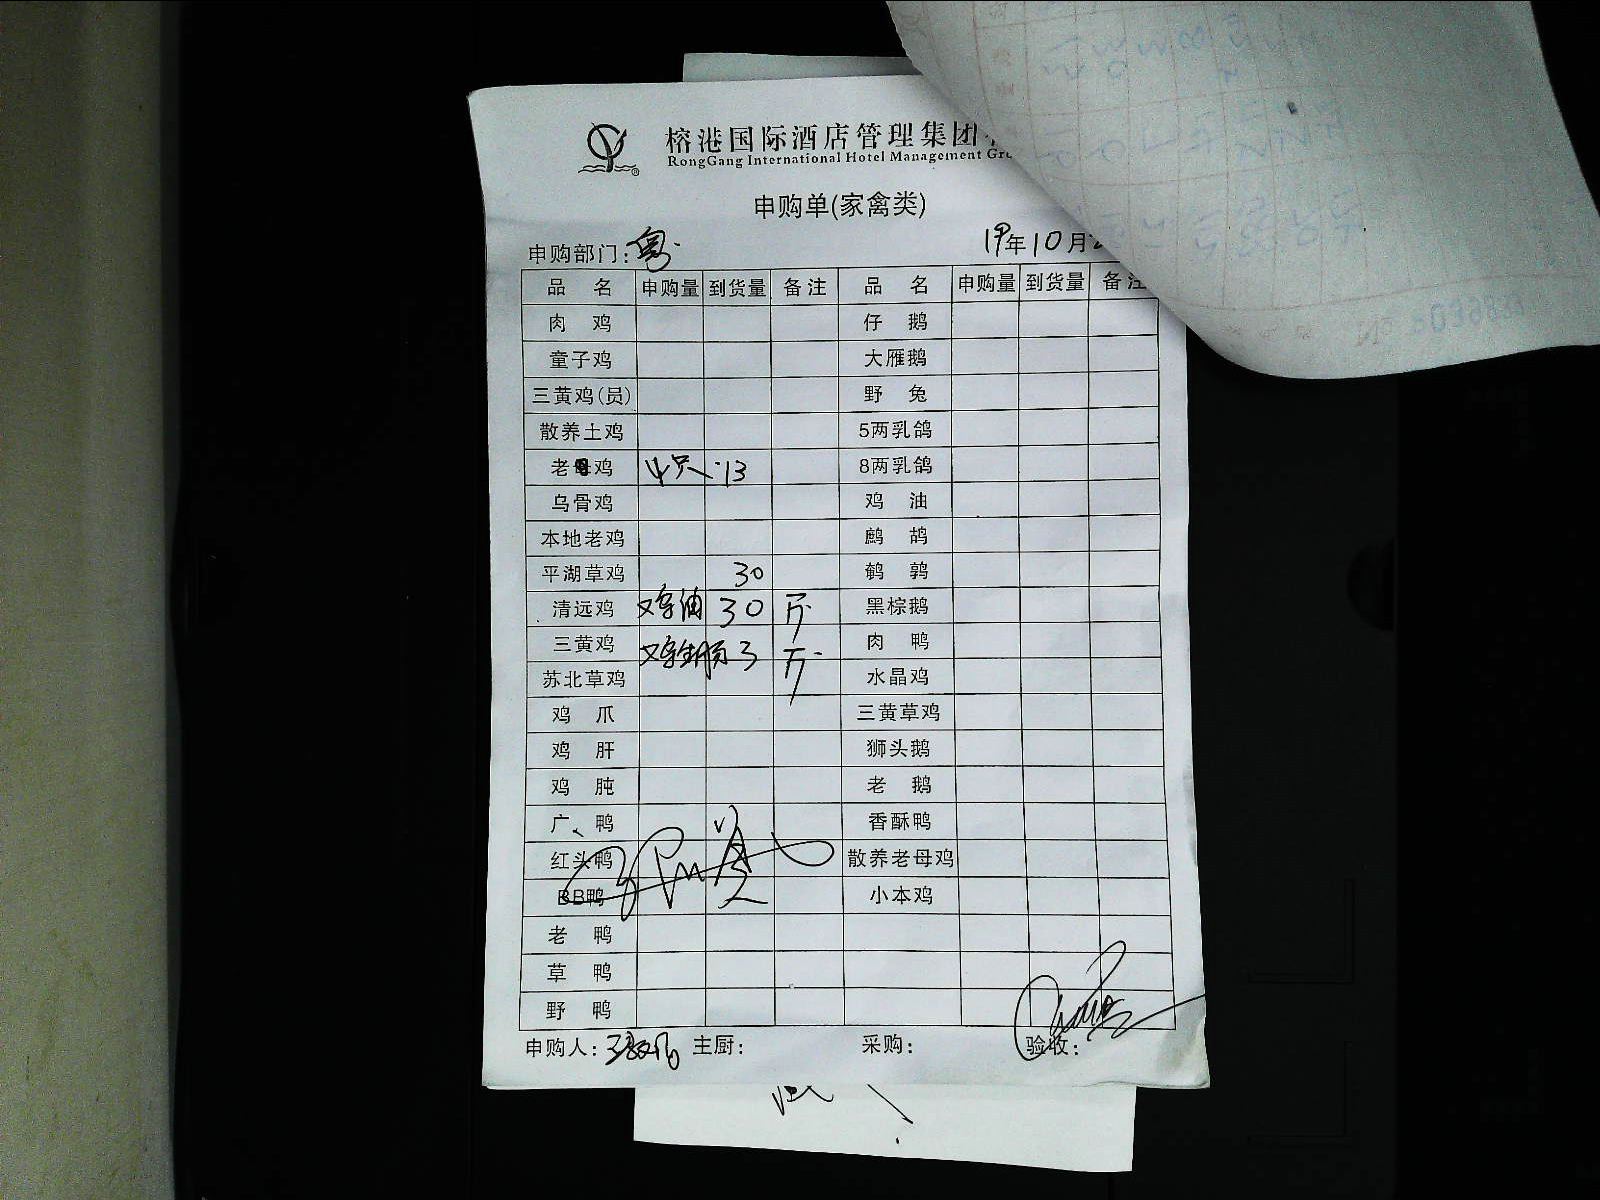 榕港国际酒店管理集团
RongGang International Hotel Management Gr
申购单(家禽类)
申购部门：粤 19年10月
品 名 申购量 到货量 备注 品 名 申购量 到货量 备注
肉 鸡 仔 鹅
童子鸡 大雁鹅
三黄鸡(员) 野 兔
散养土鸡 5两乳鸽
老母鸡 4只 13 8两乳鸽
乌骨鸡 鸡 油
本地老鸡 鹧 鸪
平湖草鸡 30 鹌 鹑
清远鸡 鸡油 30 斤 黑棕鹅
三黄鸡 3 斤 肉 鸭
苏北草鸡 水晶鸡
鸡 爪 三黄草鸡
鸡 肝 狮头鹅
鸡 肫 老 鹅
广 鸭 香酥鸭
红头鸭 散养老母鸡
BB鸭 小本鸡
老 鸭
草 鸭
野 鸭
申购人： 主厨： 采购： 验收：